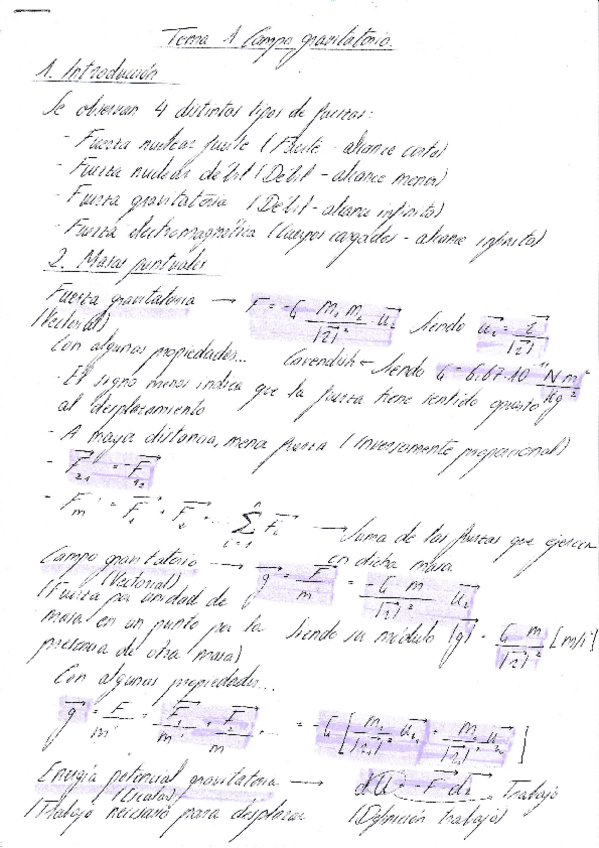 Tema 1 Campo gravitatorio.
1. Introducción
Se observan 4 distintos tipos de fuerzas:
- Fuerza nuclear fuerte (Fuerte - alcance corto)
- Fuerza nuclear débil (Débil - alcance menor)
- Fuerza gravitatoria (Débil - alcance infinito)
- Fuerza electromagnética (Cuerpos cargados - alcance infinito)
2. Masas puntuales
Fuerza gravitatoria → F = -G m₁ m₂ / |r|² u_r siendo u_r = r / |r|
(Vectorial)
Con algunas propiedades... Cavendish = siendo G = 6,67·10⁻¹¹ N m² / kg²
- El signo menos indica que la fuerza tiene sentido opuesto
al desplazamiento
- A mayor distancia, menor fuerza (Inversamente proporcional)
- F₂₁ = -F₁₂
- F_m = F₁ + F₂ ... Σ F_i → Suma de las fuerzas que ejercen
en dicha masa
Campo gravitatorio → g = F / m = -G m / |r|² u_r
(Vectorial)
(Fuerza por unidad de
masa en un punto por la siendo su módulo |g| = G m / |r|² [m/s²]
presencia de otra masa)
Con algunas propiedades...
g = F / m = F₁ / m + F₂ / m ... = -G [ m₁ / |r₁|² u_r₁ + m₂ / |r₂|² u_r₂ ]
Energía potencial gravitatoria → dU = -F dr → Trabajo
(Escalar)
(Trabajo necesario para desplazar (Definición trabajo)